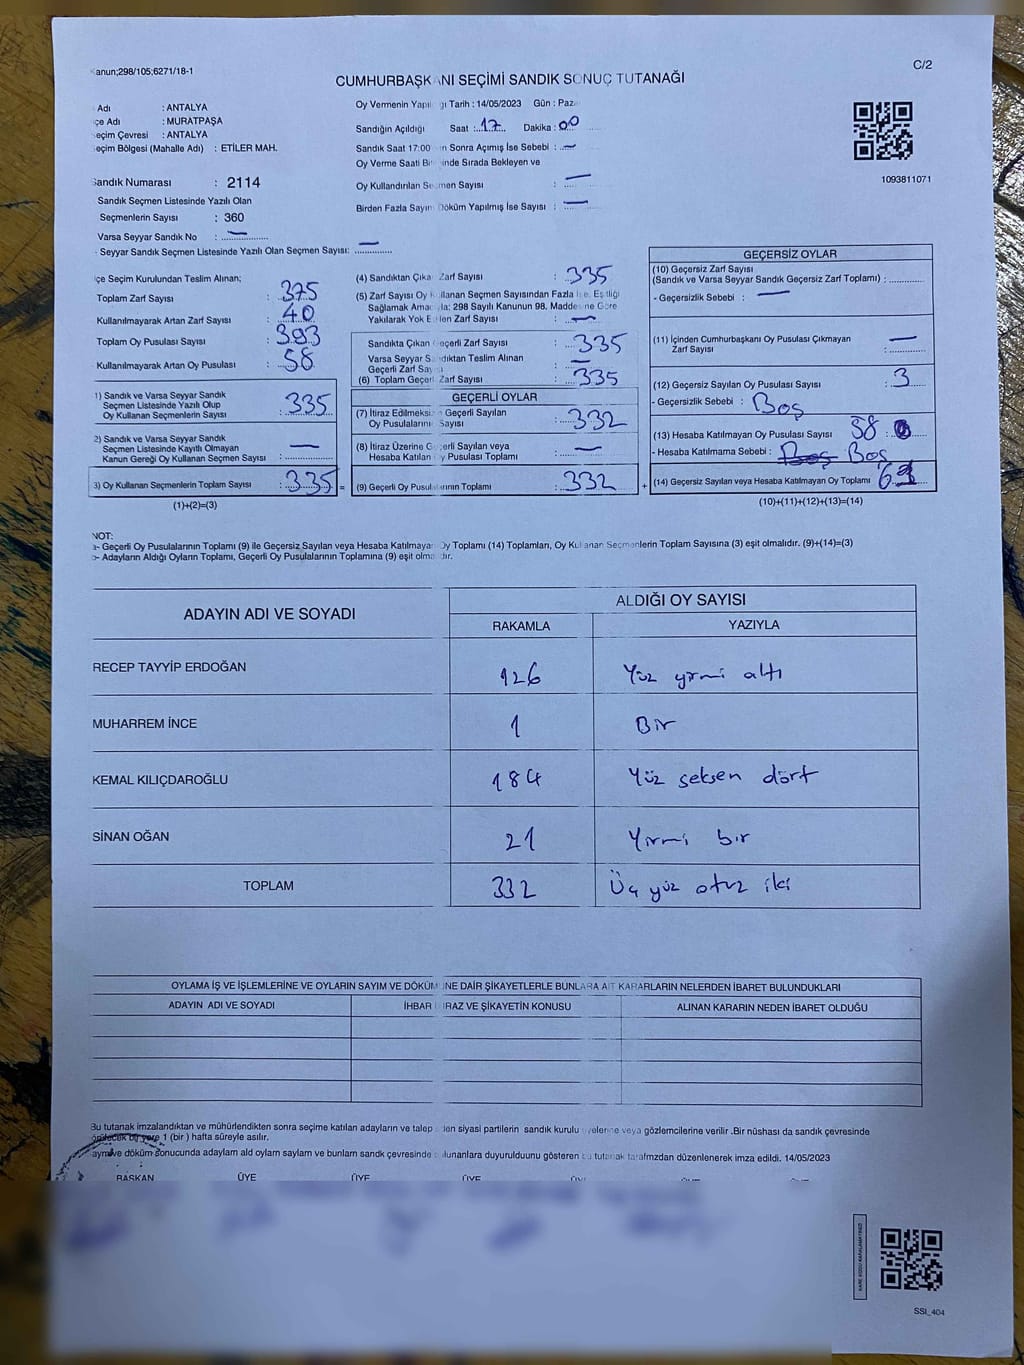 anun;298/105;6271/18-1
C/2
CUMHURBAŞKANI SEÇİMİ SANDIK SONUÇ TUTANAĞI
Adı : ANTALYA
çe Adı : MURATPAŞA
eçim Çevresi : ANTALYA
eçim Bölgesi (Mahalle Adı) : ETİLER MAH.
Sandık Numarası : 2114
Sandık Seçmen Listesinde Yazılı Olan
Seçmenlerin Sayısı : 360
Varsa Seyyar Sandık No : —
- Seyyar Sandık Seçmen Listesinde Yazılı Olan Seçmen Sayısı: —
Oy Vermenin Yapıl ğı Tarih : 14/05/2023 Gün : Paz
Sandığın Açıldığı Saat : 17 Dakika : 00
Sandık Saat 17:00 n Sonra Açımış İse Sebebi : —
Oy Verme Saati Bi inde Sırada Bekleyen ve
Oy Kullandırılan Seçmen Sayısı : —
Birden Fazla Sayım Döküm Yapılmış İse Sayısı : —
1093811071
çe Seçim Kurulundan Teslim Alınan;
Toplam Zarf Sayısı : 375
Kullanılmayarak Artan Zarf Sayısı : 40
Toplam Oy Pusulası Sayısı : 393
Kullanılmayarak Artan Oy Pusulası : 58
1) Sandık ve Varsa Seyyar Sandık
Seçmen Listesinde Yazılı Olup
Oy Kullanan Seçmenlerin Sayısı : 335
2) Sandık ve Varsa Seyyar Sandık
Seçmen Listesinde Kayıtlı Olmayan
Kanun Gereği Oy Kullanan Seçmen Sayısı : —
3) Oy Kullanan Seçmenlerin Toplam Sayısı : 335 =
(1)+(2)=(3)
(4) Sandıktan Çıka Zarf Sayısı : 335
(5) Zarf Sayısı Oy Kullanan Seçmen Sayısından Fazla İse, Eşitliği
Sağlamak Amac la; 298 Sayılı Kanunun 98. Maddesine Göre
Yakılarak Yok E len Zarf Sayısı : —
Sandıkta Çıkan Geçerli Zarf Sayısı : 335
Varsa Seyyar Sandıktan Teslim Alınan
Geçerli Zarf Say : —
(6) Toplam Geçerl Zarf Sayısı : 335
GEÇERLİ OYLAR
(7) İtiraz Edilmeksiz n Geçerli Sayılan
Oy Pusulalarını Sayısı : 332
(8) İtiraz Üzerine Geçerli Sayılan veya
Hesaba Katılan Oy Pusulası Toplamı : —
(9) Geçerli Oy Pusulalarının Toplamı : 332 +
GEÇERSİZ OYLAR
(10) Geçersiz Zarf Sayısı
(Sandık ve Varsa Seyyar Sandık Geçersiz Zarf Toplamı) :
- Geçersizlik Sebebi : —
(11) İçinden Cumhurbaşkanı Oy Pusulası Çıkmayan
Zarf Sayısı : —
(12) Geçersiz Sayılan Oy Pusulası Sayısı : 3
- Geçersizlik Sebebi : Boş
(13) Hesaba Katılmayan Oy Pusulası Sayısı 58
- Hesaba Katılmama Sebebi : Boş Boş
(14) Geçersiz Sayılan veya Hesaba Katılmayan Oy Toplamı
(10)+(11)+(12)+(13)=(14)
NOT:
a- Geçerli Oy Pusulalarının Toplamı (9) ile Geçersiz Sayılan veya Hesaba Katılmaya Oy Toplamı (14) Toplamları, Oy Kullanan Seçmenlerin Toplam Sayısına (3) eşit olmalıdır. (9)+(14)=(3)
b- Adayların Aldığı Oyların Toplamı, Geçerli Oy Pusulalarının Toplamına (9) eşit olma dır.
ADAYIN ADI VE SOYADI ALDIĞI OY SAYISI
RAKAMLA YAZIYLA
RECEP TAYYİP ERDOĞAN 126 Yüz yirmi altı
MUHARREM İNCE 1 Bir
KEMAL KILIÇDAROĞLU 184 Yüz seksen dört
SİNAN OĞAN 21 Yirmi bir
TOPLAM 332 Üç yüz otuz iki
OYLAMA İŞ VE İŞLEMLERİNE VE OYLARIN SAYIM VE DÖKÜM NE DAİR ŞİKAYETLERLE BUNLARA AİT KARARLARIN NELERDEN İBARET BULUNDUKLARI
ADAYIN ADI VE SOYADI İHBAR İ RAZ VE ŞİKAYETİN KONUSU ALINAN KARARIN NEDEN İBARET OLDUĞU
Bu tutanak imzalandıktan ve mühürlendikten sonra seçime katılan adayların ve talep eden siyasi partilerin sandık kurulu üyelerine veya gözlemcilerine verilir .Bir nüshası da sandık çevresinde
görülecek bir yere 1 (bir ) hafta süreyle asılır.
ayım ve döküm sonucunda adaylarn ald oylarn saylarn ve bunlarn sandk çevresinde bulunanlara duyurulduunu gösteren bu tutanak tarafmzdan düzenlenerek imza edildi. 14/05/2023
BAŞKAN ÜYE ÜYE ÜYE
KARE KODU KARALAMAYINIZ!
SSI_404